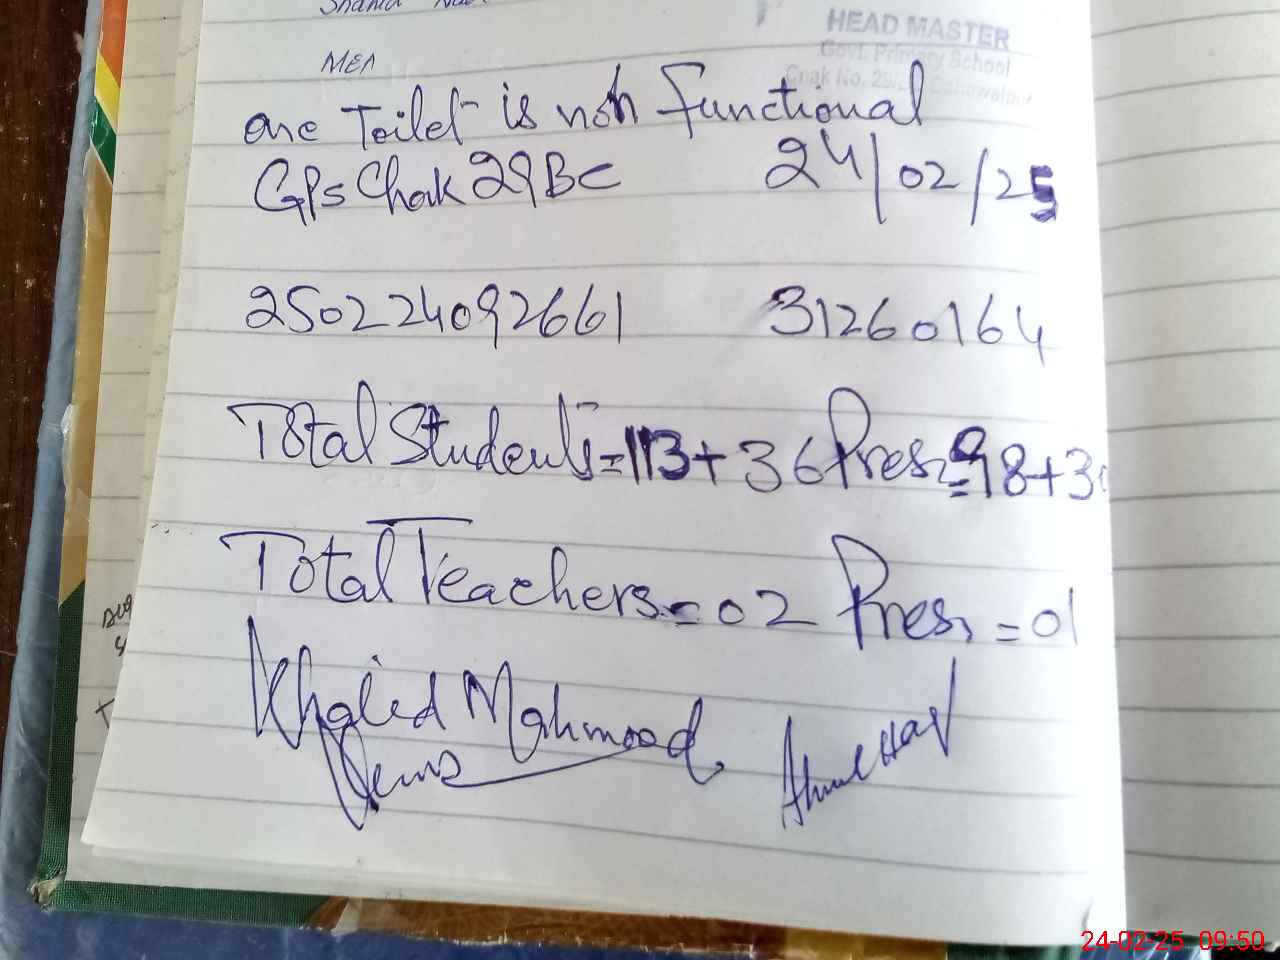 MEA
HEAD MASTER
Govt. Primary School
one Toilet is not Functional
GPs Chak 29BC 24/02/25
250224092661 31260164
Total Students = 113 + 36 Pres = 98 + 3
Total Teachers = 02 Pres, = 01
Khalid Mahmood
24-02-25 09:50